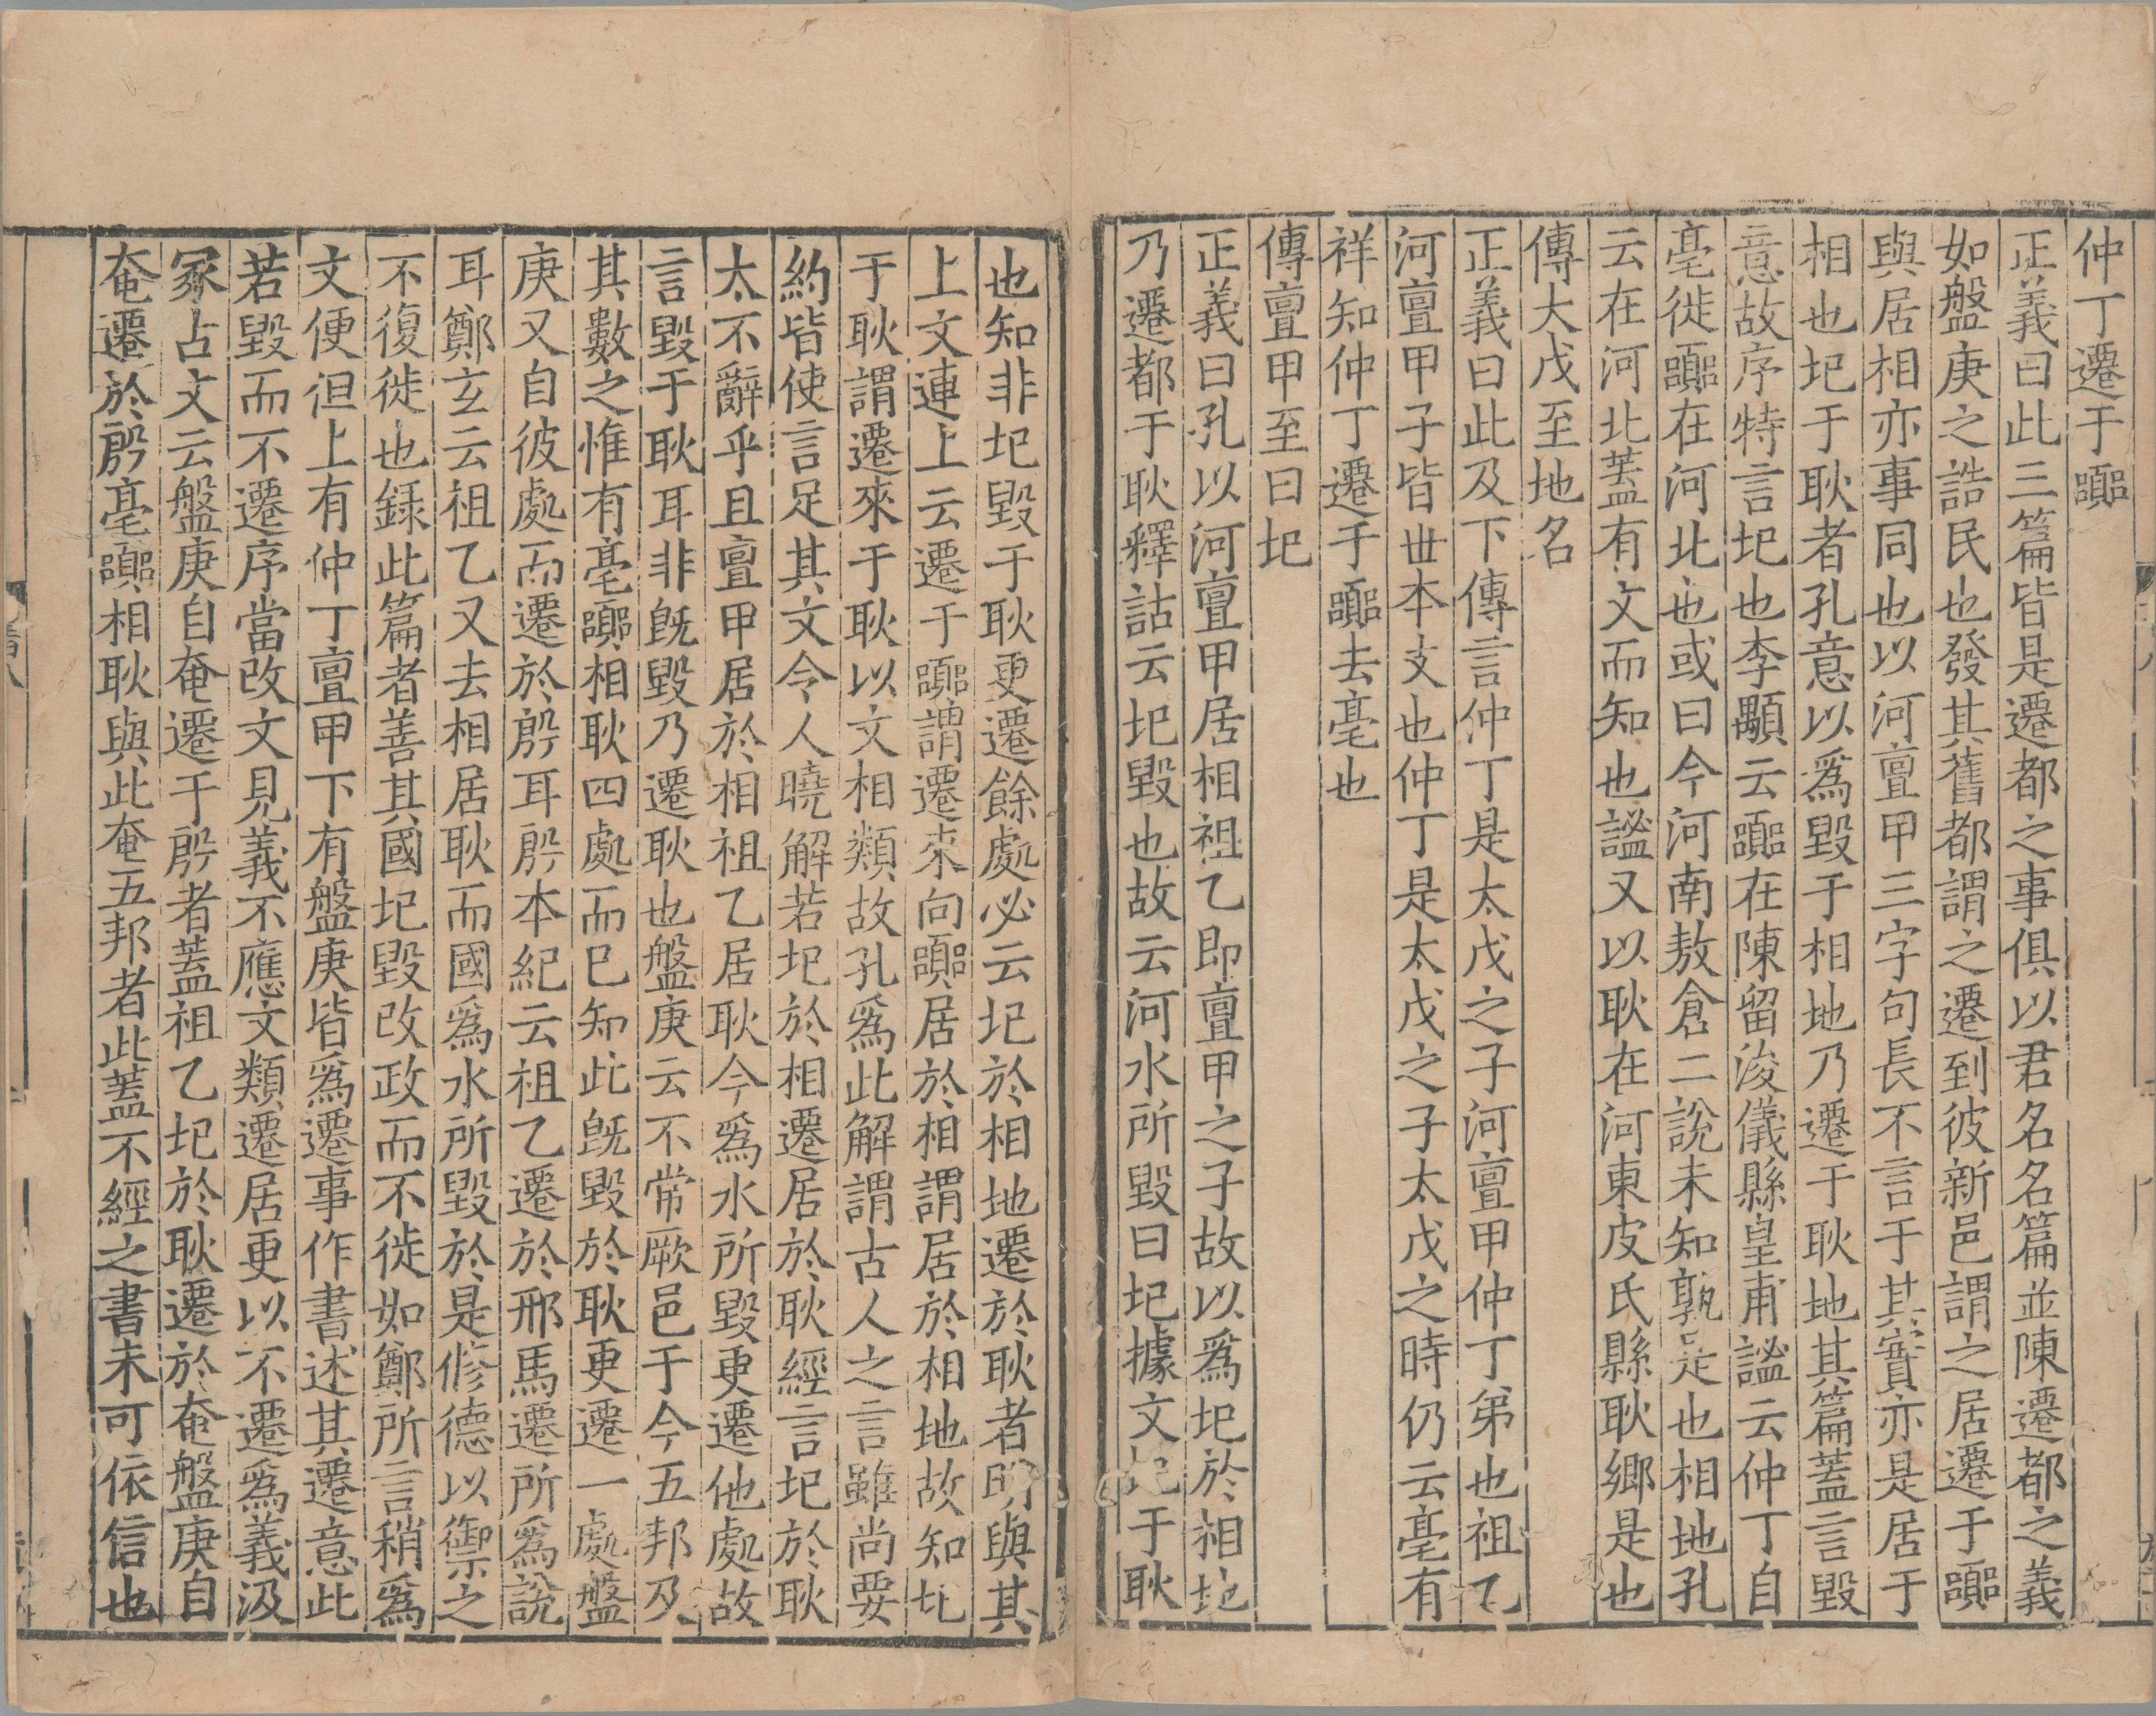 仲丁遷于嚻
正義曰此三篇皆是遷都之事俱以君名名篇並陳遷都之義
如盤庚之誥民也發其舊都謂之遷到彼新邑謂之居遷于嚻
與居相亦事同也以河亶甲三字句長不言于其實亦是居于
相也圯于耿者孔意以爲毀于相地乃遷于耿地其篇蓋言毀
意故序特言圯也李顒云嚻在陳留浚儀縣皇甫謐云仲丁自
亳徙嚻在河北也或曰今河南敖倉二說未知孰是也相地孔
云在河北蓋有文而知也謐又以耿在河東皮氏縣耿鄉是也
傳大戊至地名
正義曰此及下傳言仲丁是太戊之子河亶甲仲丁弟也祖乙
河亶甲子皆世本文也仲丁是太戊之子太戊之時仍云亳有
祥知仲丁遷于嚻去亳也
傳亶甲至曰圯
正義曰孔以河亶甲居相祖乙即亶甲之子故以爲圯於相地
乃遷都于耿釋詁云圯毀也故云河水所毀曰圯據文圯于耿
也知非圯毀于耿更遷餘處必云圯於相地遷於耿者明與其
上文連上云遷于嚻謂遷來向嚻居於相謂居於相地故知圯
于耿謂遷來于耿以文相類故孔爲此解謂古人之言雖尚要
約皆使言足其文令人曉解若圯於相遷居於耿經言圯於耿
太不辭乎且亶甲居於相祖乙居耿今爲水所毀更遷他處故
言毀于耿耳非旣毀乃遷耿也盤庚云不常厥邑于今五邦及
其數之惟有亳嚻相耿四處而巳知此旣毀於耿更遷一處盤
庚又自彼處而遷於殷耳殷本紀云祖乙遷於邢馬遷所爲說
耳鄭玄云祖乙又去相居耿而國爲水所毀於是修德以禦之
不復徙也錄此篇者善其國圯毀改政而不徙如鄭所言稍爲
文便但上有仲丁亶甲下有盤庚皆爲遷事作書述其遷意此
若毀而不遷序當改文見義不應文類遷居更以不遷爲義汲
冢古文云盤庚自奄遷于殷者蓋祖乙圯於耿遷於奄盤庚自
奄遷於殷亳嚻相耿與此奄五邦者此蓋不經之書未可依信也